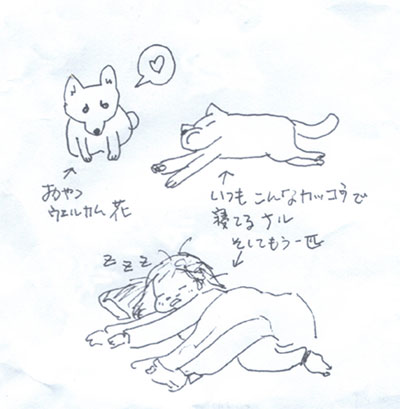 おやつ
ウェルカム花
いつもこんなカッコウで
寝てるナル
そしてもう一匹
z z z